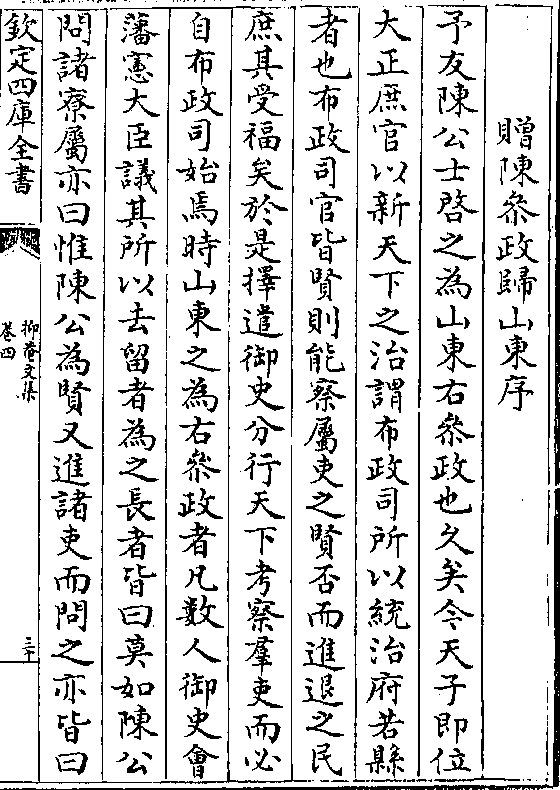 贈陳叅政歸山東序
予友陳公士啓之為山東右叅政也乆矣今天子即位
大正庶官以新天下之治謂布政司所以統治府若縣
者也布政司官皆賢則能察屬吏之賢否而進退之民
庶其受福矣於是擇遣御史分行天下考察羣吏而必
自布政司始焉時山東之為右叅政者凡數人御史會
藩憲大臣議其所以去留者為之長者皆曰莫如陳公
問諸寮屬亦曰惟陳公為賢又進諸吏而問之亦皆曰
欽定四庫全書
抑菴文集
卷四
三十